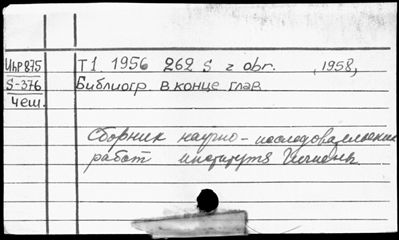 ИhР875 T1 1956 262 s z obr. ,1958,
S-376 Библиогр. в конце глав
чеш.
Сборник научно-исследовательских
работ института Гигиены